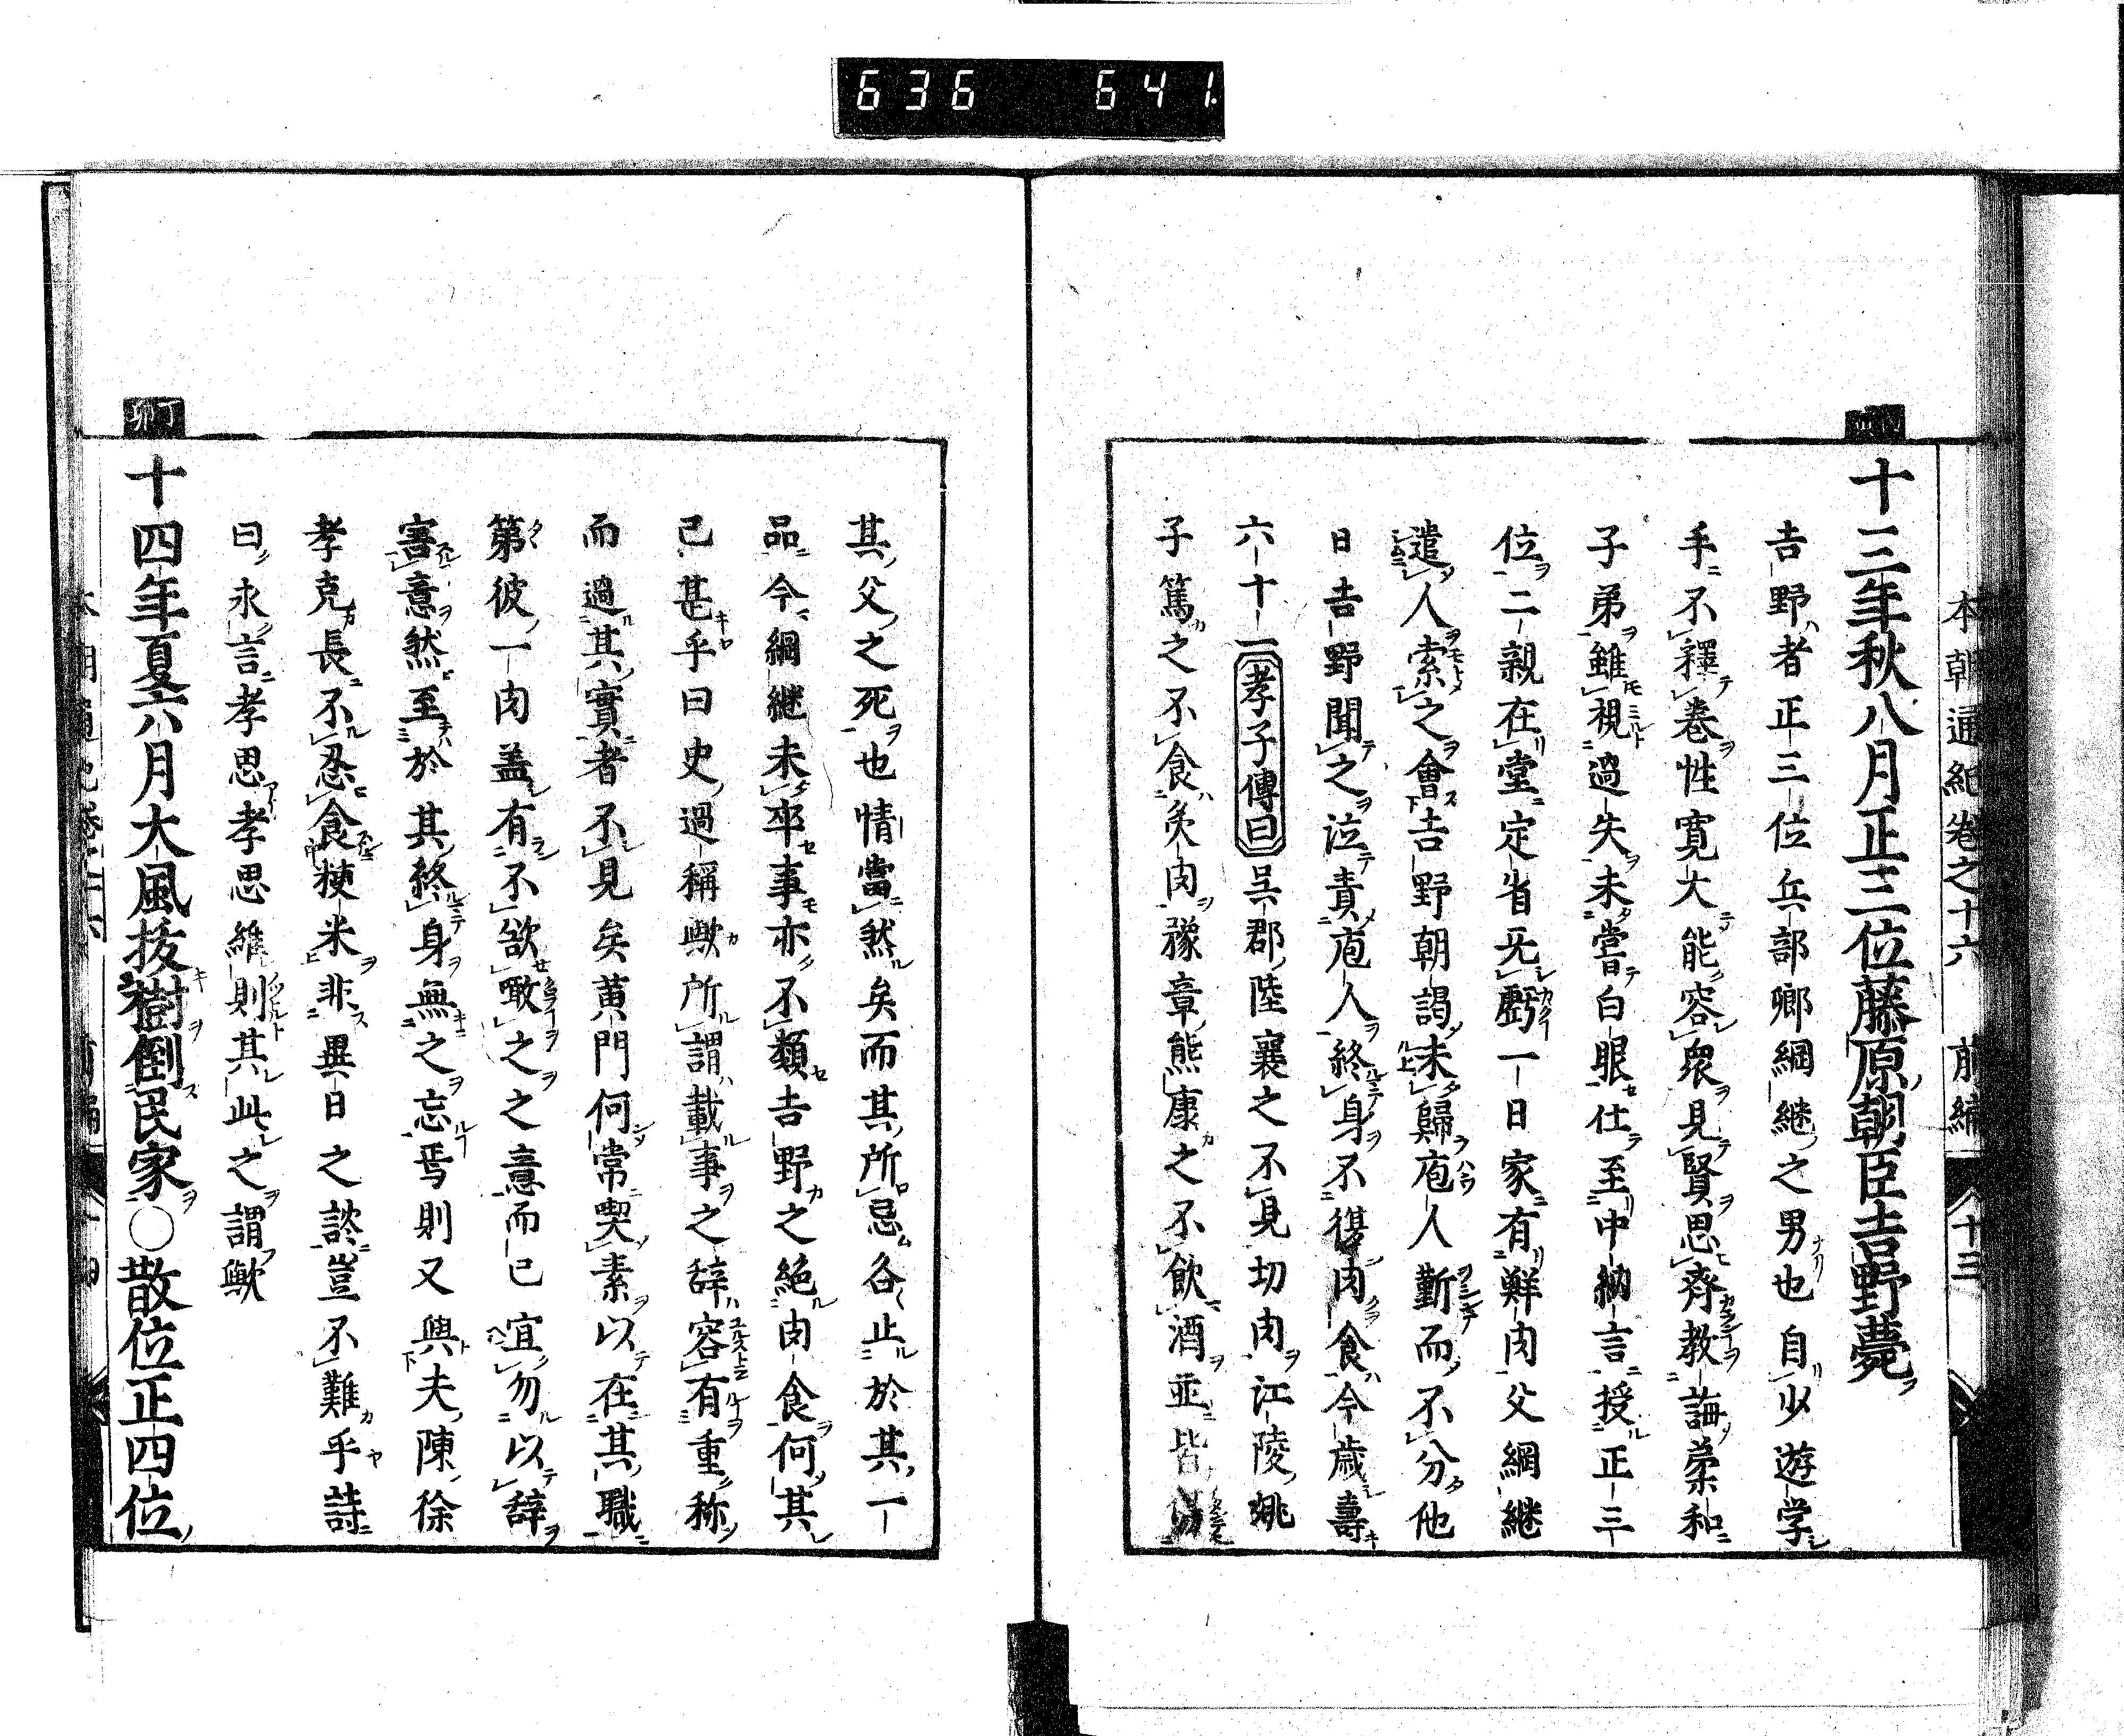 636 641
本朝通紀卷之十六 前編 十三
十三年秋八月正三位藤原朝臣吉野薨
吉野者正三位兵部卿綱継之男也自少遊学
手不釋卷性寛大能容衆見賢思齊教誨柔和
子弟雖視過失未嘗白眼仕至中納言授正三
位二親在堂定省无虧一日家有鮮肉父綱継
遣人索之會吉野朝謁未歸庖人斳而不分他
日吉野聞之泣責庖人終身不復肉食今歳壽
六十一孝子傳曰吳郡陸襄之不見切肉江陵姚
子篤之不食炙肉豫章熊康之不飲酒並皆
其父之死也情當然矣而其所忌各止於其一
品今綱継未卒事亦不類吉野之絶肉食何其
已甚乎曰史過稱歟所謂載事之辞容有重称
而過其實者不見矣黄門何常喫素以在其職
第彼一肉盖有不欲噉之之意而已宜勿以辞
害意然至於其終身無之忘焉則又與夫陳徐
孝克長不忍食粳米非異日之談豈不難乎詩
曰永言孝思孝思維則其此之謂歟
丁卯
十四年夏六月大風抜樹倒民家〇散位正四位